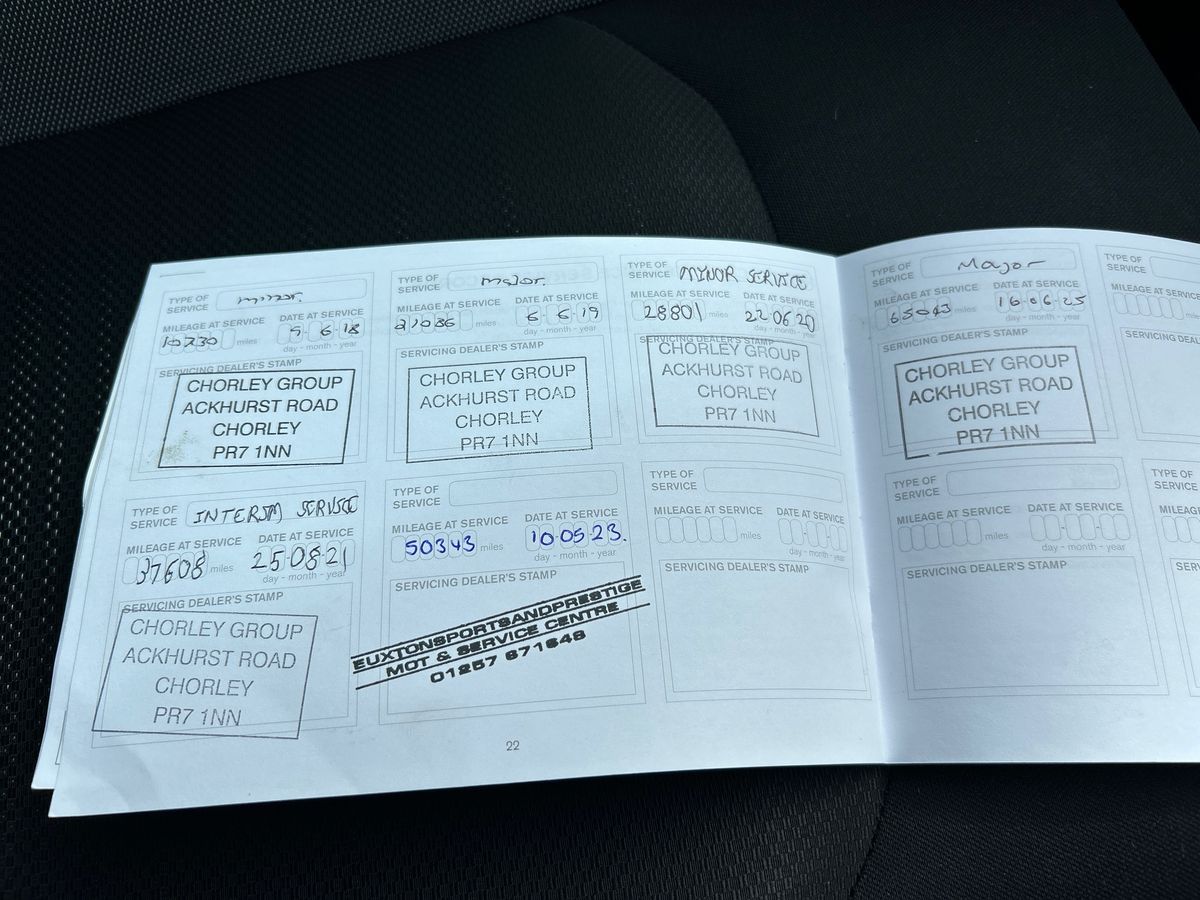 TYPE OF SERVICE minor.
MILEAGE AT SERVICE DATE AT SERVICE
10730 miles 5-6-18
day - month - year
SERVICING DEALER'S STAMP
CHORLEY GROUP
ACKHURST ROAD
CHORLEY
PR7 1NN
TYPE OF SERVICE major.
MILEAGE AT SERVICE DATE AT SERVICE
21036 miles 6-6-19
day - month - year
SERVICING DEALER'S STAMP
CHORLEY GROUP
ACKHURST ROAD
CHORLEY
PR7 1NN
TYPE OF SERVICE MINOR SERVICE
MILEAGE AT SERVICE DATE AT SERVICE
28801 miles 22 06 20
day - month - year
SERVICING DEALER'S STAMP
CHORLEY GROUP
ACKHURST ROAD
CHORLEY
PR7 1NN
TYPE OF SERVICE INTERIM SERVICE
MILEAGE AT SERVICE DATE AT SERVICE
37608 miles 25-08-21
day - month - year
SERVICING DEALER'S STAMP
CHORLEY GROUP
ACKHURST ROAD
CHORLEY
PR7 1NN
TYPE OF SERVICE
MILEAGE AT SERVICE DATE AT SERVICE
50343 miles 10-05-23.
day - month - year
SERVICING DEALER'S STAMP
EUXTONSPORTSANDPRESTIGE
MOT & SERVICE CENTRE
01257 671648
TYPE OF SERVICE
MILEAGE AT SERVICE DATE AT SERVICE
miles
day - month - year
SERVICING DEALER'S STAMP
22
TYPE OF SERVICE Major
MILEAGE AT SERVICE DATE AT SERVICE
miles 16-06-25
day - month - year
SERVICING DEALER'S STAMP
CHORLEY GROUP
ACKHURST ROAD
CHORLEY
PR7 1NN
TYPE OF SERVICE
MILEAGE AT SERVICE DATE AT SERVICE
miles
day - month - year
SERVICING DEALER'S STAMP
TYPE OF SERVICE
MILEAGE AT SERV
SERVICING DEAL
TYPE OF SERVICE
MILEAGE AT SER
SERV